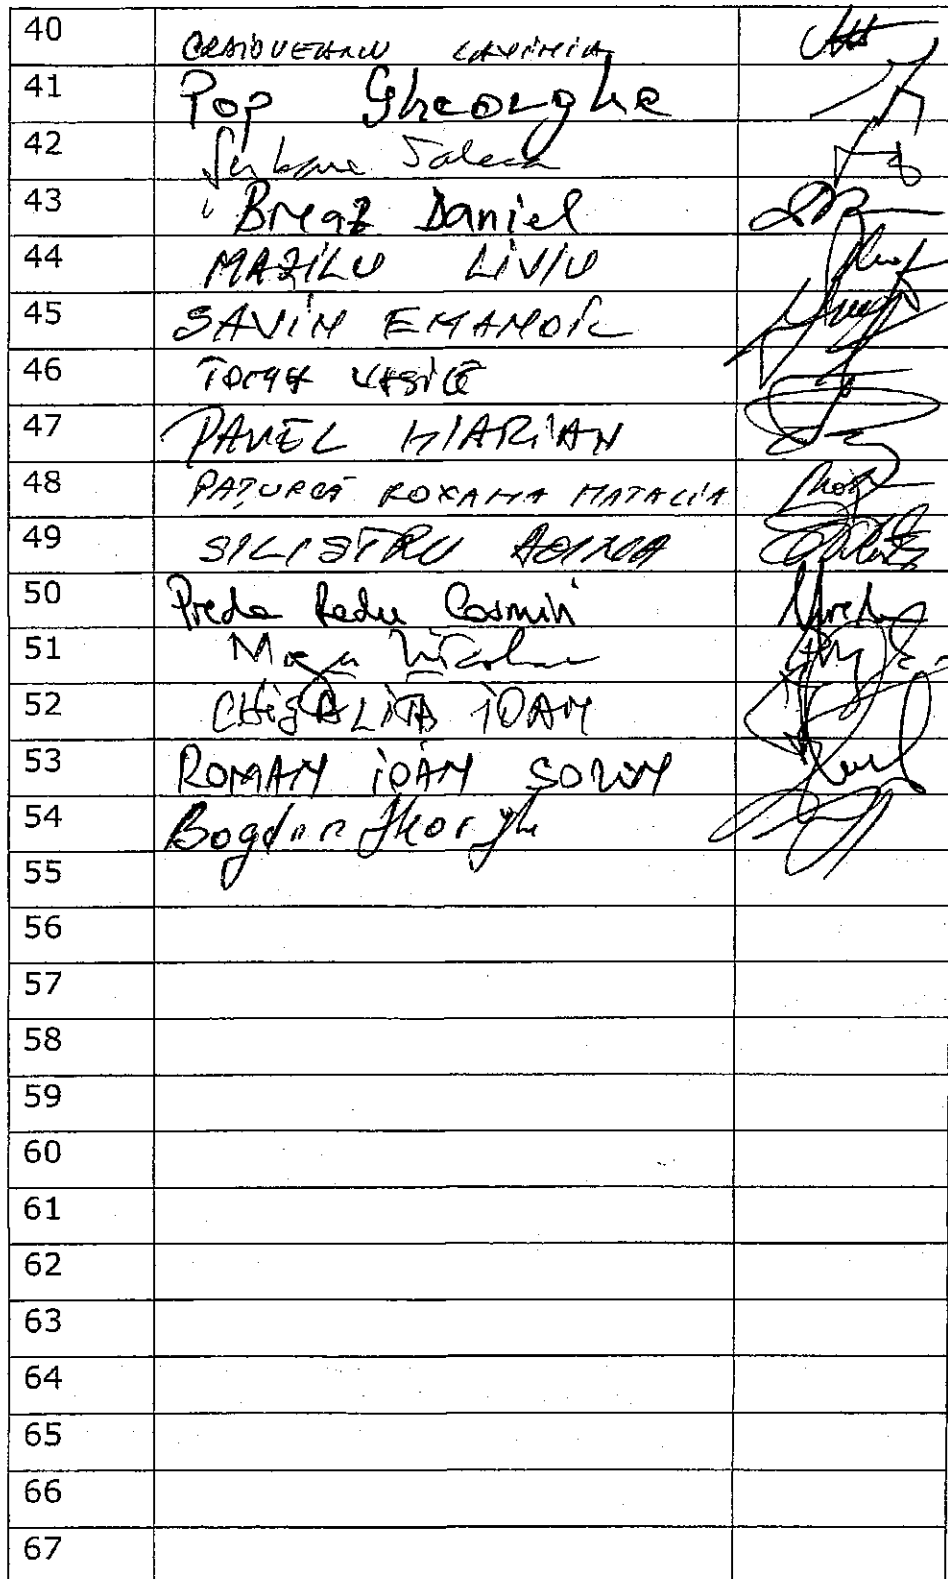 40 CRAIOVEANU LAVINIA
41 Pop Gheorghe
42
43 Breaz Daniel
44 MAZILU LIVIU
45 SAVIN EMANOIL
46 TOMA VASILE
47 PAVEL MARIAN
48 PAȚURCĂ ROXANA NATALIA
49 SILISTRU DOINA
50 Preda Radu Cosmin
51 Nicolae
52 CHISALITA IOAN
53 ROMAN IOAN SORIN
54 Bogdan Gheorghe
55
56
57
58
59
60
61
62
63
64
65
66
67